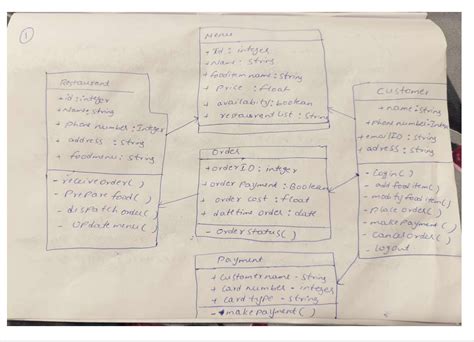 1
Menu
+ Id : integer
+ Name : string
+ fooditem name : string
+ Price : float
+ availability : boolean
+ restaurent list : string
Restaurant
+ id : integer
+ Name : string
+ phone number : Integer
+ address : string
+ foodmenu : string
- receive order( )
- Prepare food( )
- dispatch order( )
- Update menu( )
Order
+ order ID : integer
+ order payment : Boolean
+ order cost : float
+ date time order : date
- Order status( )
Customer
+ name : string
+ phone number : Integer
+ email ID : string
+ adress : string
- Login( )
- add food item( )
- modify food item( )
- place order( )
- make payment( )
- Cancel order( )
- logout
Payment
+ Customer name - string
+ Card number - integer
+ Card type - string
- make payment( )